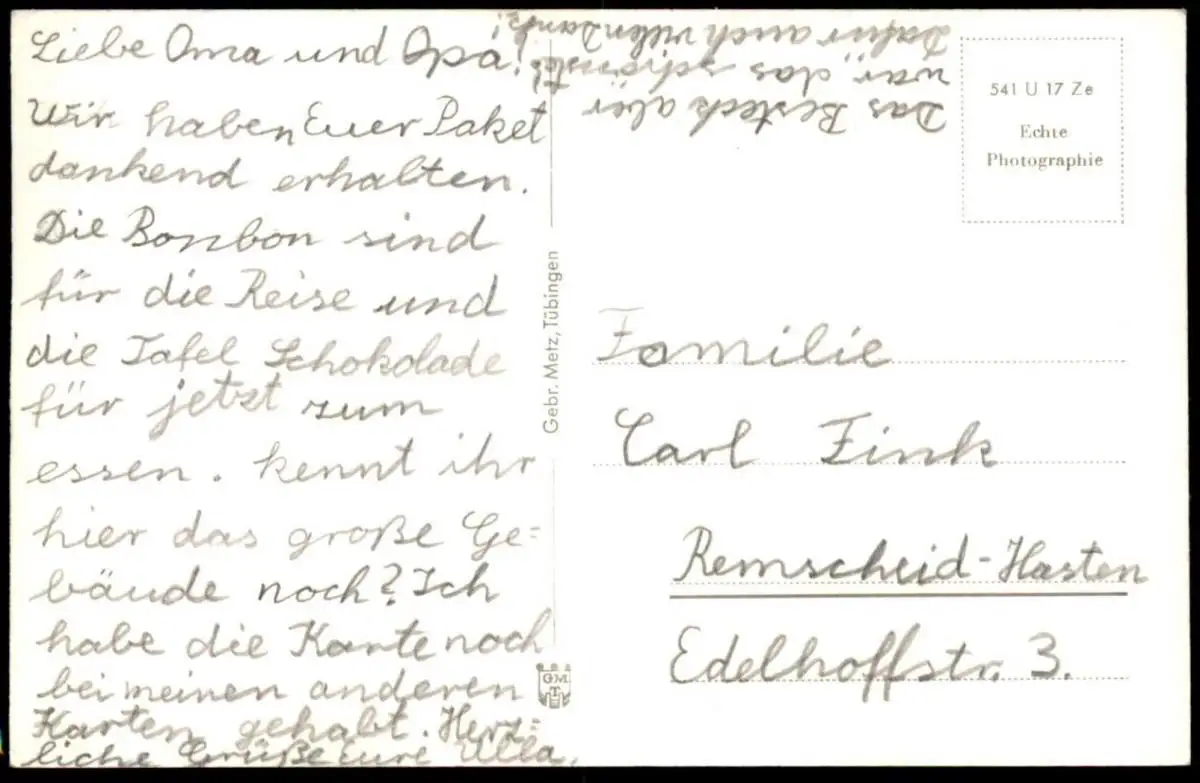 Liebe Oma und Opa!
Wir haben Euer Paket
dankend erhalten.
Die Bonbon sind
für die Reise und
die Tafel Schokolade
für jetzt zum
essen. kennt ihr
hier das große Ge=
bäude noch? Ich
habe die Karte noch
bei meinen anderen
Karten gehabt. Herz=
liche Grüße Eure Ulla.
Das Besteck aber
war das schönste!
Dafür auch vielen Dank!
Gebr. Metz, Tübingen
GMT
541 U 17 Ze
Echte
Photographie
Familie
Carl Fink
Remscheid-Hasten
Edelhoffstr. 3.